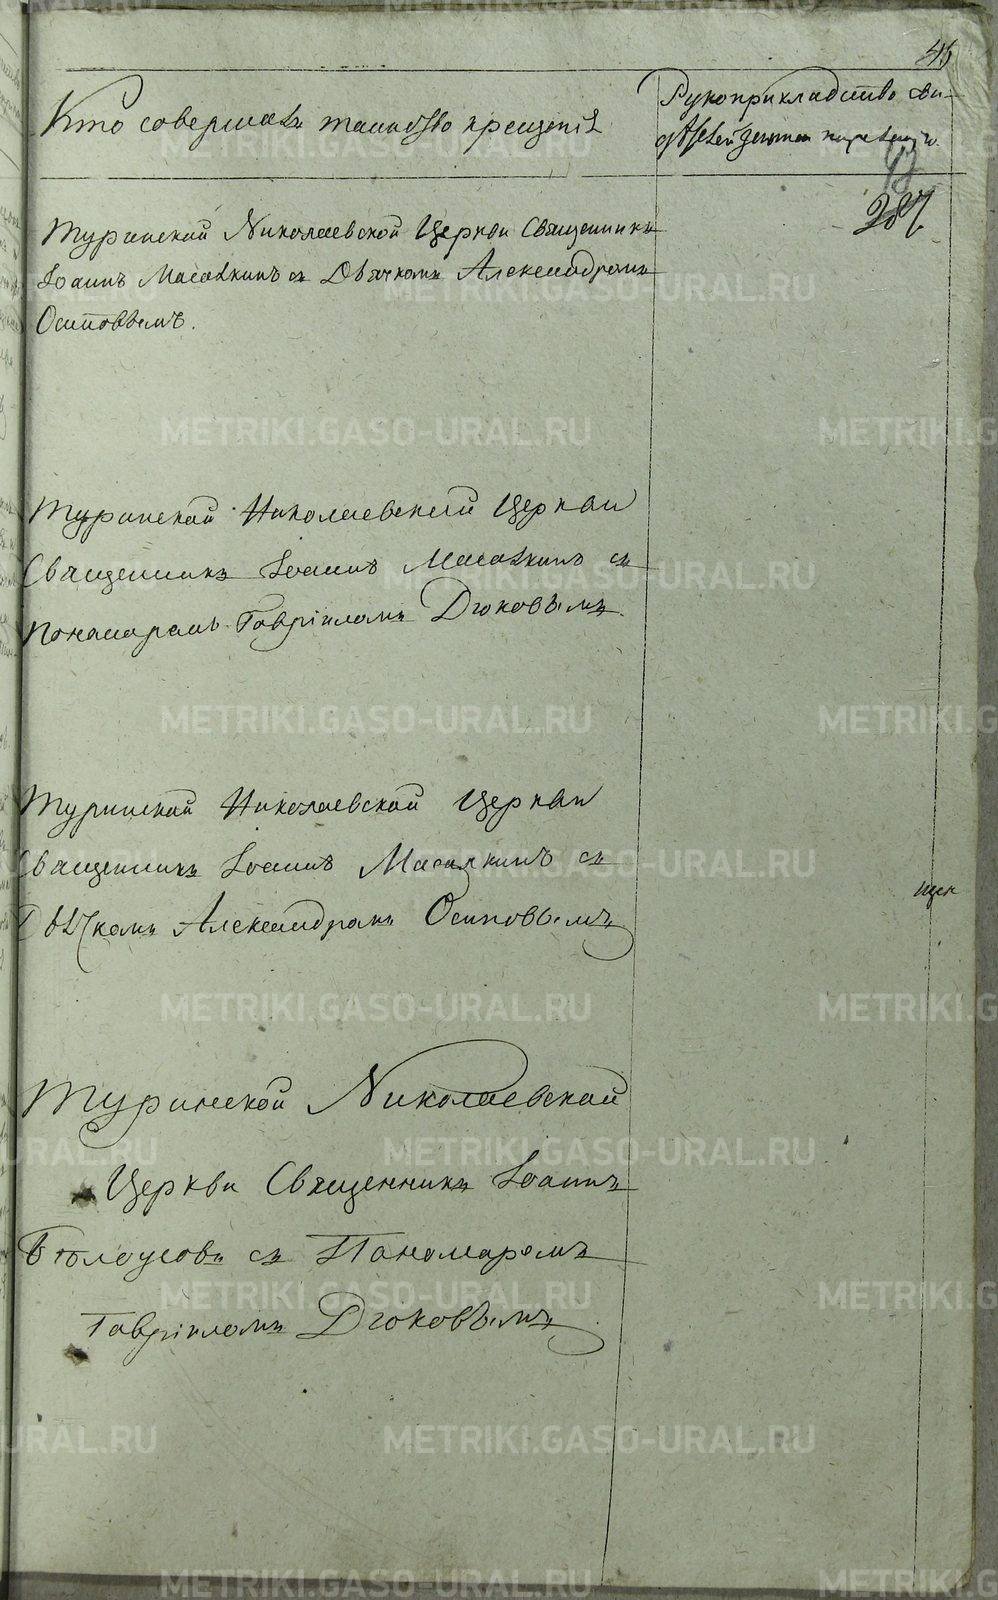 45
Кто совершалъ таинство крещенія
Рукоприкладство сви-
дѣтелей
287
Туринской Николаевской Церкви Священникъ
Іоаннъ Масалкинъ съ Дьячкомъ Александромъ
Осиповымъ.
Туринской Николаевской Церкви
Священникъ Іоаннъ Масалкинъ съ
Пономаромъ Гавріиломъ Дюковымъ.
Туринской Николаевской Церкви
Священникъ Іоаннъ Масалкинъ съ
Дьячкомъ Александромъ Осиповымъ
Туринской Николаевской
Церкви Священникъ Іоаннъ
Бѣлоусовъ съ Пономаромъ
Гавріиломъ Дюковымъ
METRIKI.GASO-URAL.RU